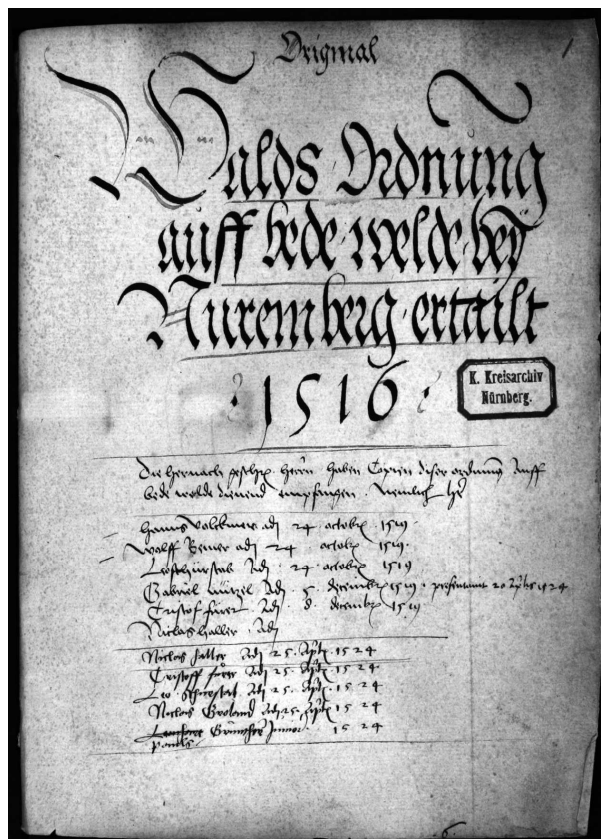 Original
1
Walds Ordnung
auff bede welde bey
Nuremberg ertailt
1516
K. Kreisarchiv
Nürnberg.
Die hernach herrn haben Copien diser ordnung auff
bede welde dienend empfangen . Nemlich
hanns volckmer adj 24 octobr 1519
wolff adj 24 octobr 1519
adj 24 octobr 1519
Gabriel nützel adj 5 decembr 1519 . 1524
Cristof fürer adj decembr 1519
Niclas haller adj
Niclas haller adj 25 1524
Cristoff fürer adj 25 1524
adj 25 1524
Niclas Groland adj 25 1524
Junior 1524